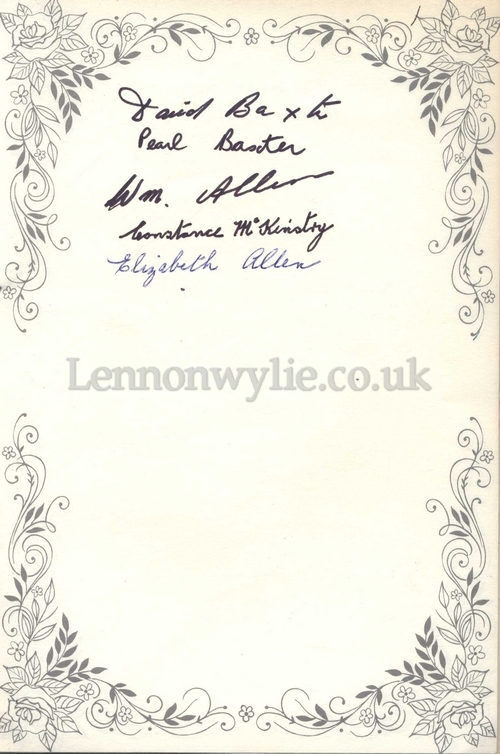 David Baxter
Pearl Baxter
Wm. Allen
Constance McKinstry
Elizabeth Allen
Lennonwylie.co.uk